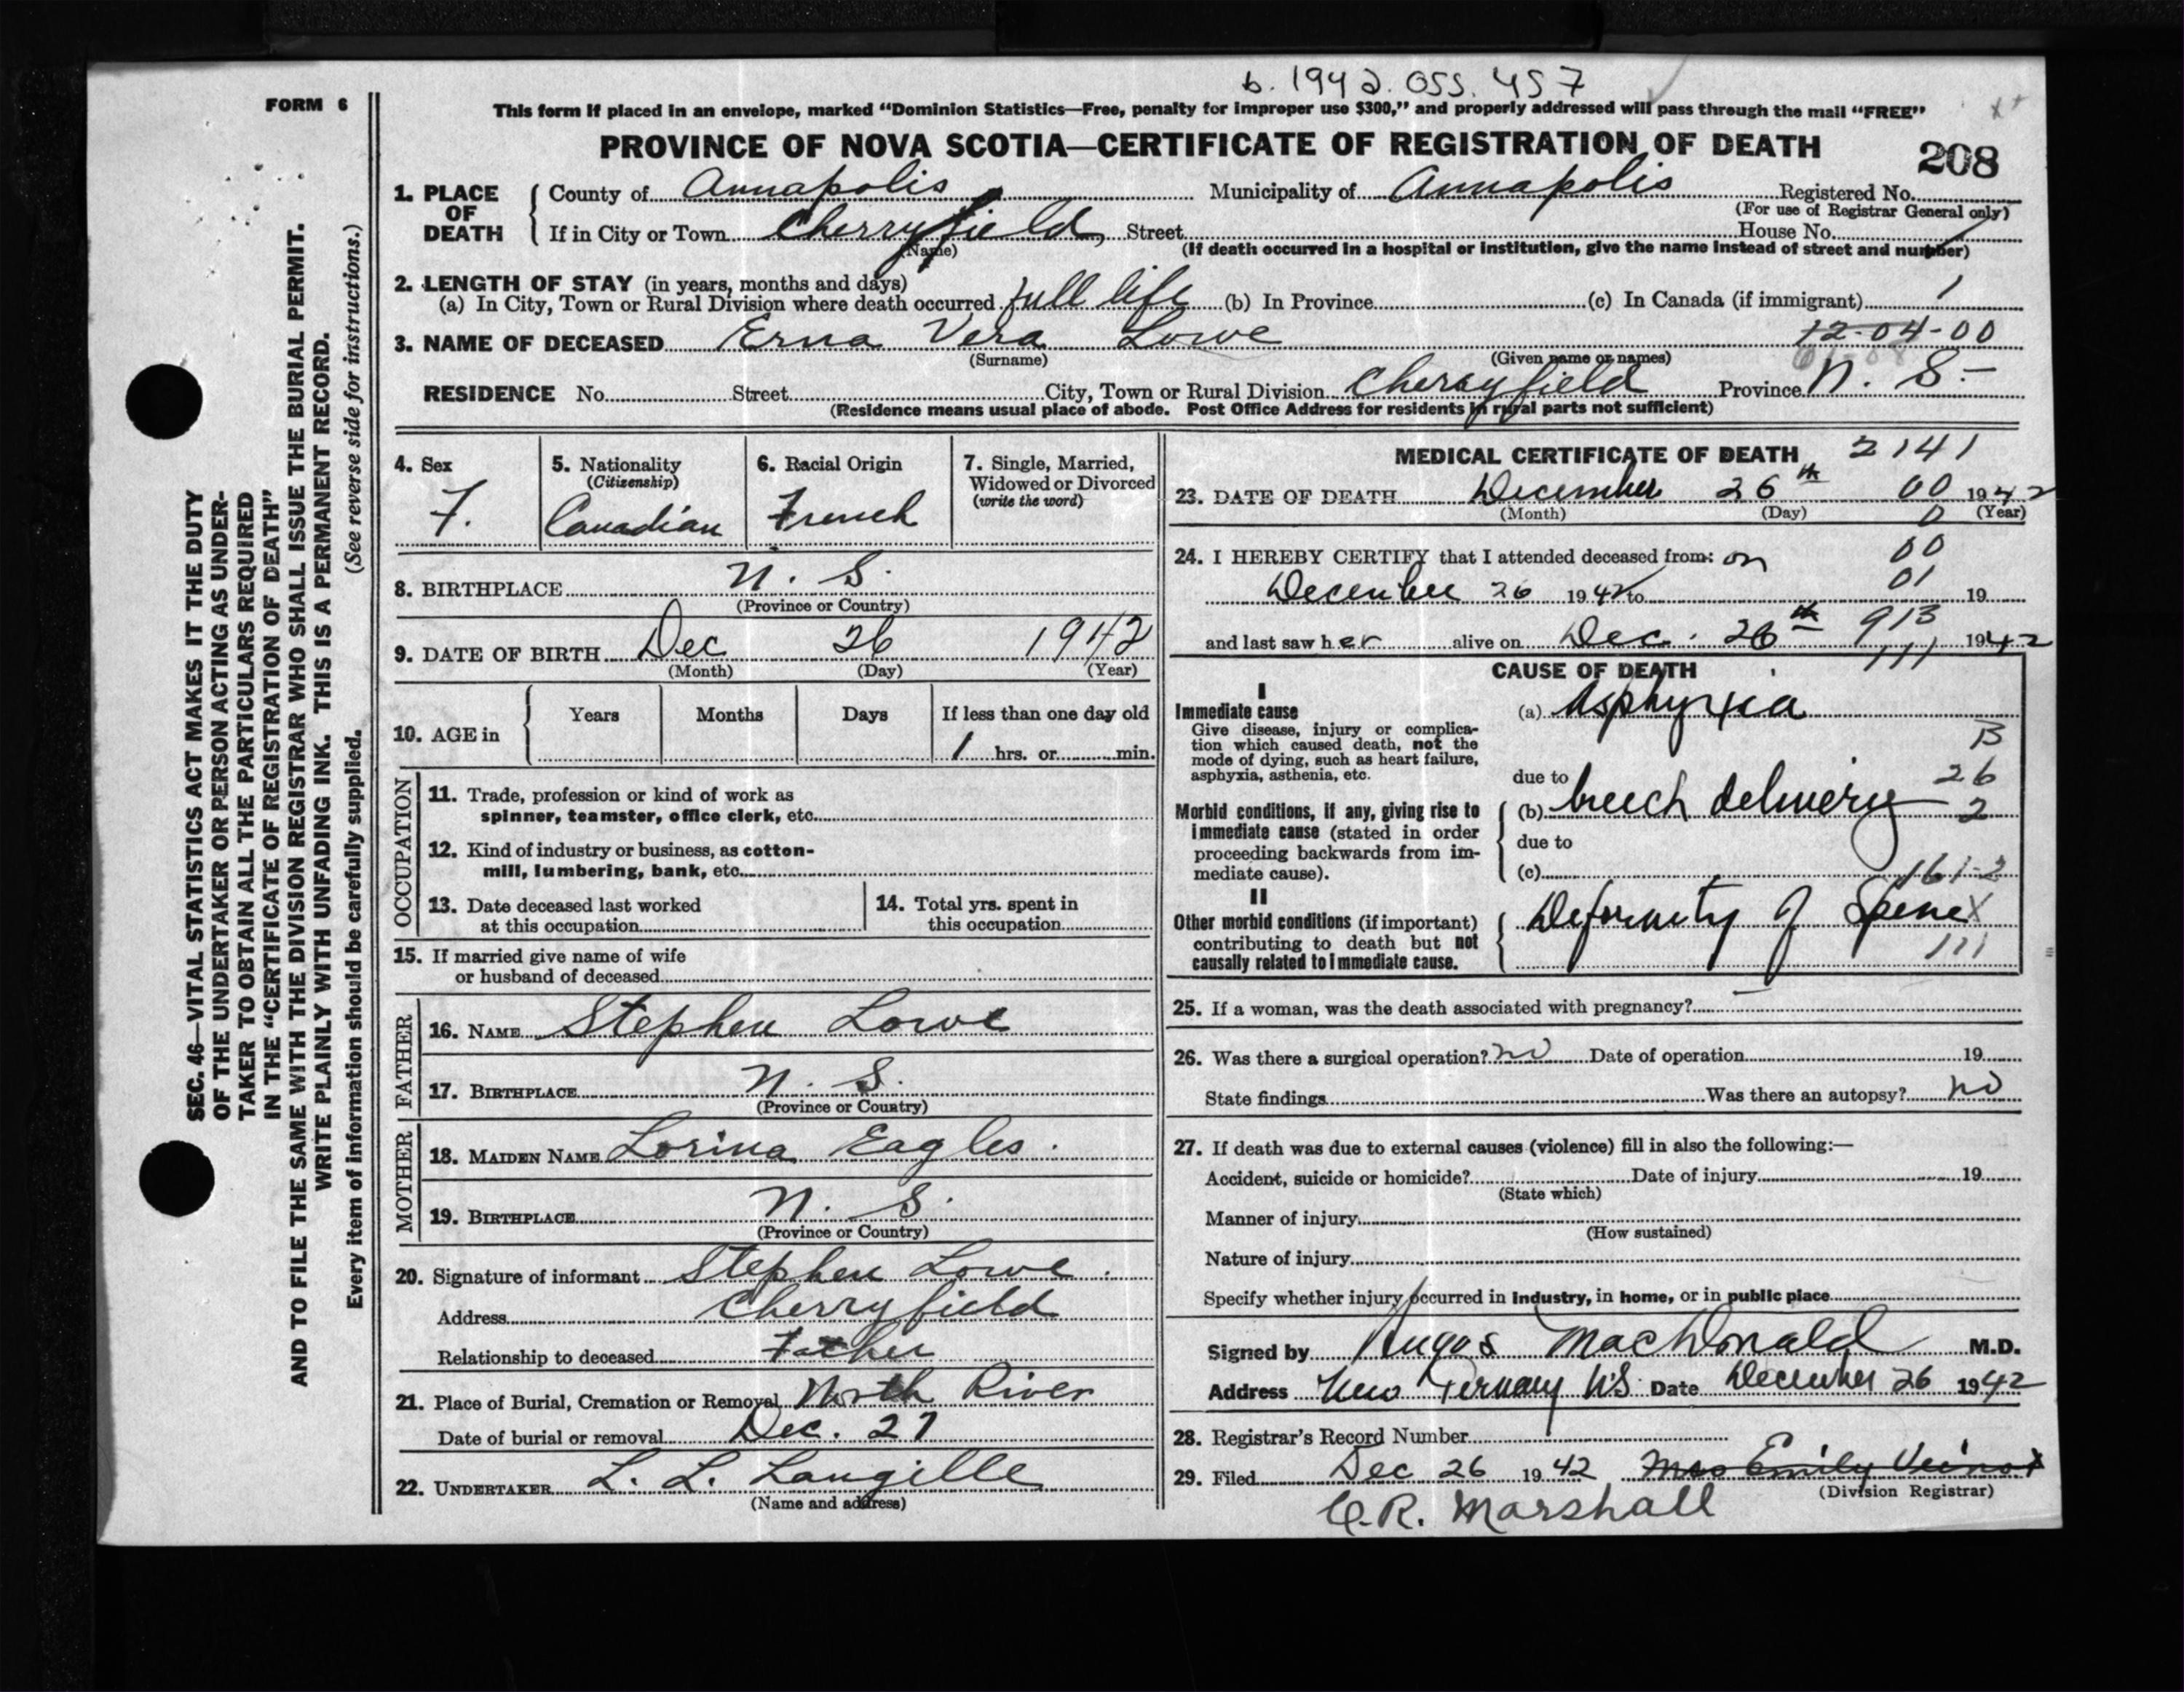 b. 1942. 055. 457
FORM 6
This form if placed in an envelope, marked “Dominion Statistics—Free, penalty for improper use $300,” and properly addressed will pass through the mail “FREE”
PROVINCE OF NOVA SCOTIA—CERTIFICATE OF REGISTRATION OF DEATH
208
1. PLACE OF DEATH { County of Annapolis Municipality of Annapolis Registered No.
(For use of Registrar General only)
If in City or Town Cherryfield, Street House No.
(Name) (If death occurred in a hospital or institution, give the name instead of street and number)
2. LENGTH OF STAY (in years, months and days)
(a) In City, Town or Rural Division where death occurred full life (b) In Province (c) In Canada (if immigrant) 1
3. NAME OF DECEASED Erna Vera Lowe 12-04-00
(Surname) (Given name or names)
RESIDENCE No. Street City, Town or Rural Division Cherryfield Province N. S-
(Residence means usual place of abode. Post Office Address for residents in rural parts not sufficient)
4. Sex F.
5. Nationality (Citizenship) Canadian
6. Racial Origin French
7. Single, Married, Widowed or Divorced (write the word)
8. BIRTHPLACE N. S.
(Province or Country)
9. DATE OF BIRTH Dec 26 1942
(Month) (Day) (Year)
10. AGE in { Years Months Days If less than one day old
1 hrs. or min.
OCCUPATION
11. Trade, profession or kind of work as
spinner, teamster, office clerk, etc.
12. Kind of industry or business, as cotton-
mill, lumbering, bank, etc.
13. Date deceased last worked
at this occupation
14. Total yrs. spent in
this occupation
15. If married give name of wife
or husband of deceased
FATHER
16. NAME Stephen Lowe
17. BIRTHPLACE N. S.
(Province or Country)
MOTHER
18. MAIDEN NAME Lorina Eagles.
19. BIRTHPLACE N. S.
(Province or Country)
20. Signature of informant Stephen Lowe.
Address Cherryfield
Relationship to deceased Father
21. Place of Burial, Cremation or Removal North River
Date of burial or removal Dec. 27
22. UNDERTAKER L. L. Langille
(Name and address)
MEDICAL CERTIFICATE OF DEATH 2141
23. DATE OF DEATH December 26th 00 1942
(Month) (Day) 0 (Year)
24. I HEREBY CERTIFY that I attended deceased from: on 00
December 26 1942 to 01 19
and last saw her alive on Dec. 26th 913 1942
CAUSE OF DEATH 111
I
Immediate cause
Give disease, injury or complica-
tion which caused death, not the
mode of dying, such as heart failure,
asphyxia, asthenia, etc.
(a) Asphyxia
B
due to 26
Morbid conditions, if any, giving rise to
immediate cause (stated in order
proceeding backwards from im-
mediate cause).
(b) breech delivery 2
due to
(c) 161-2
II
Other morbid conditions (if important)
contributing to death but not
causally related to immediate cause.
Deformity of Spine X
111
25. If a woman, was the death associated with pregnancy? —
26. Was there a surgical operation? no Date of operation 19
State findings Was there an autopsy? no
27. If death was due to external causes (violence) fill in also the following:—
Accident, suicide or homicide? Date of injury 19
(State which)
Manner of injury
(How sustained)
Nature of injury
Specify whether injury occurred in industry, in home, or in public place
Signed by Angus MacDonald M.D.
Address New Germany N.S. Date December 26 1942
28. Registrar's Record Number
29. Filed Dec 26 1942 Mrs Emily Veinot
(Division Registrar)
C.R. Marshall
SEC. 46—VITAL STATISTICS ACT MAKES IT THE DUTY
OF THE UNDERTAKER OR PERSON ACTING AS UNDER-
TAKER TO OBTAIN ALL THE PARTICULARS REQUIRED
IN THE “CERTIFICATE OF REGISTRATION OF DEATH”
AND TO FILE THE SAME WITH THE DIVISION REGISTRAR WHO SHALL ISSUE THE BURIAL PERMIT.
WRITE PLAINLY WITH UNFADING INK. THIS IS A PERMANENT RECORD.
Every item of information should be carefully supplied. (See reverse side for instructions.)